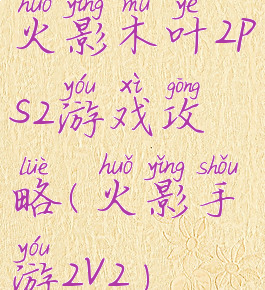 huǒ yǐng mù yè
火影木叶2P
yóu xì gōng
S2游戏攻
lüè huǒ yǐng shǒu
略(火影手
yóu
游2V2)